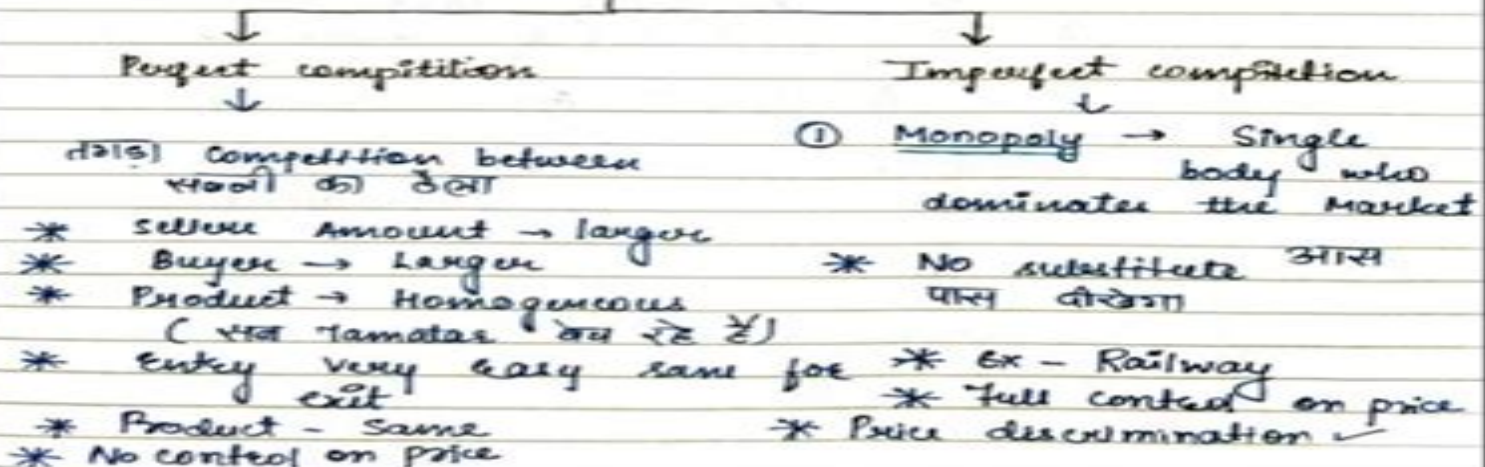 Perfect compitition
↓
तगड़ा Competition between
सब्जी का ठेला
* Sellers Amount → larger
* Buyer → Larger
* Product → Homogeneous
( सब Tamatar बेच रहे हैं)
* Entry very easy same for
exit
* Product - Same
* No control on price
Imperfect compitetion
↓
① Monopoly → Single
body who
dominates the Market
* No substitute आस
पास दीखेगा
* Ex - Railway
* Full control on price
* Price discrimination ✓